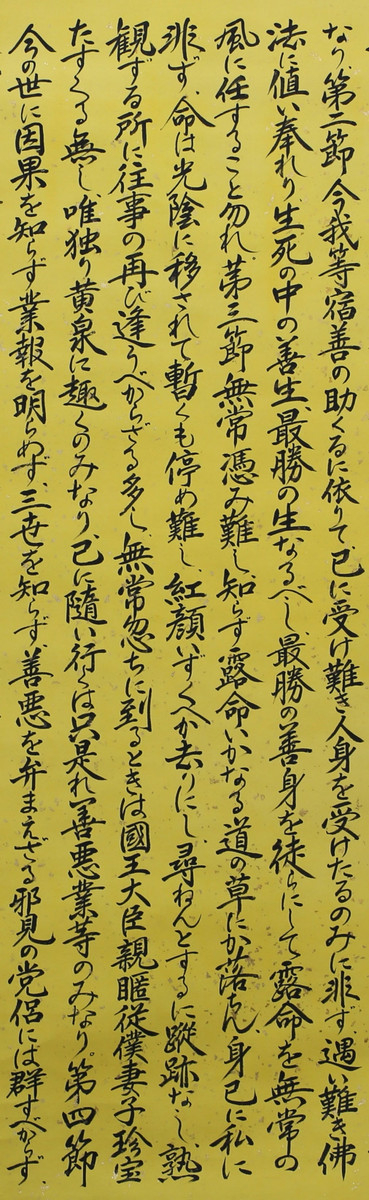 なり、第二節今我等宿善の助くるに依りて、已に受け難き人身を受けたるのみに非ず遇い難き佛
法に値い奉れり、生死の中の善生、最勝の生なるべし、最勝の善身を徒らにして露命を無常の
風に任すること勿れ、第三節無常憑み難し、知らず露命いかなる道の草にか落ちん、身已に私に
非ず、命は光陰に移されて暫くも停め難し、紅顔いずくへか去りにし、尋ねんとするに蹤跡なし、熟
観ずる所に往事の再び逢うべからざる多し、無常忽ちに到るときは國王大臣親暱従僕妻子珍宝
たすくる無し、唯独り黄泉に趣くのみなり、己に随い行くは只是れ善悪業等のみなり。第四節
今の世に因果を知らず業報を明らめず、三世を知らず、善悪を弁まえざる邪見の党侶には群すべからず、